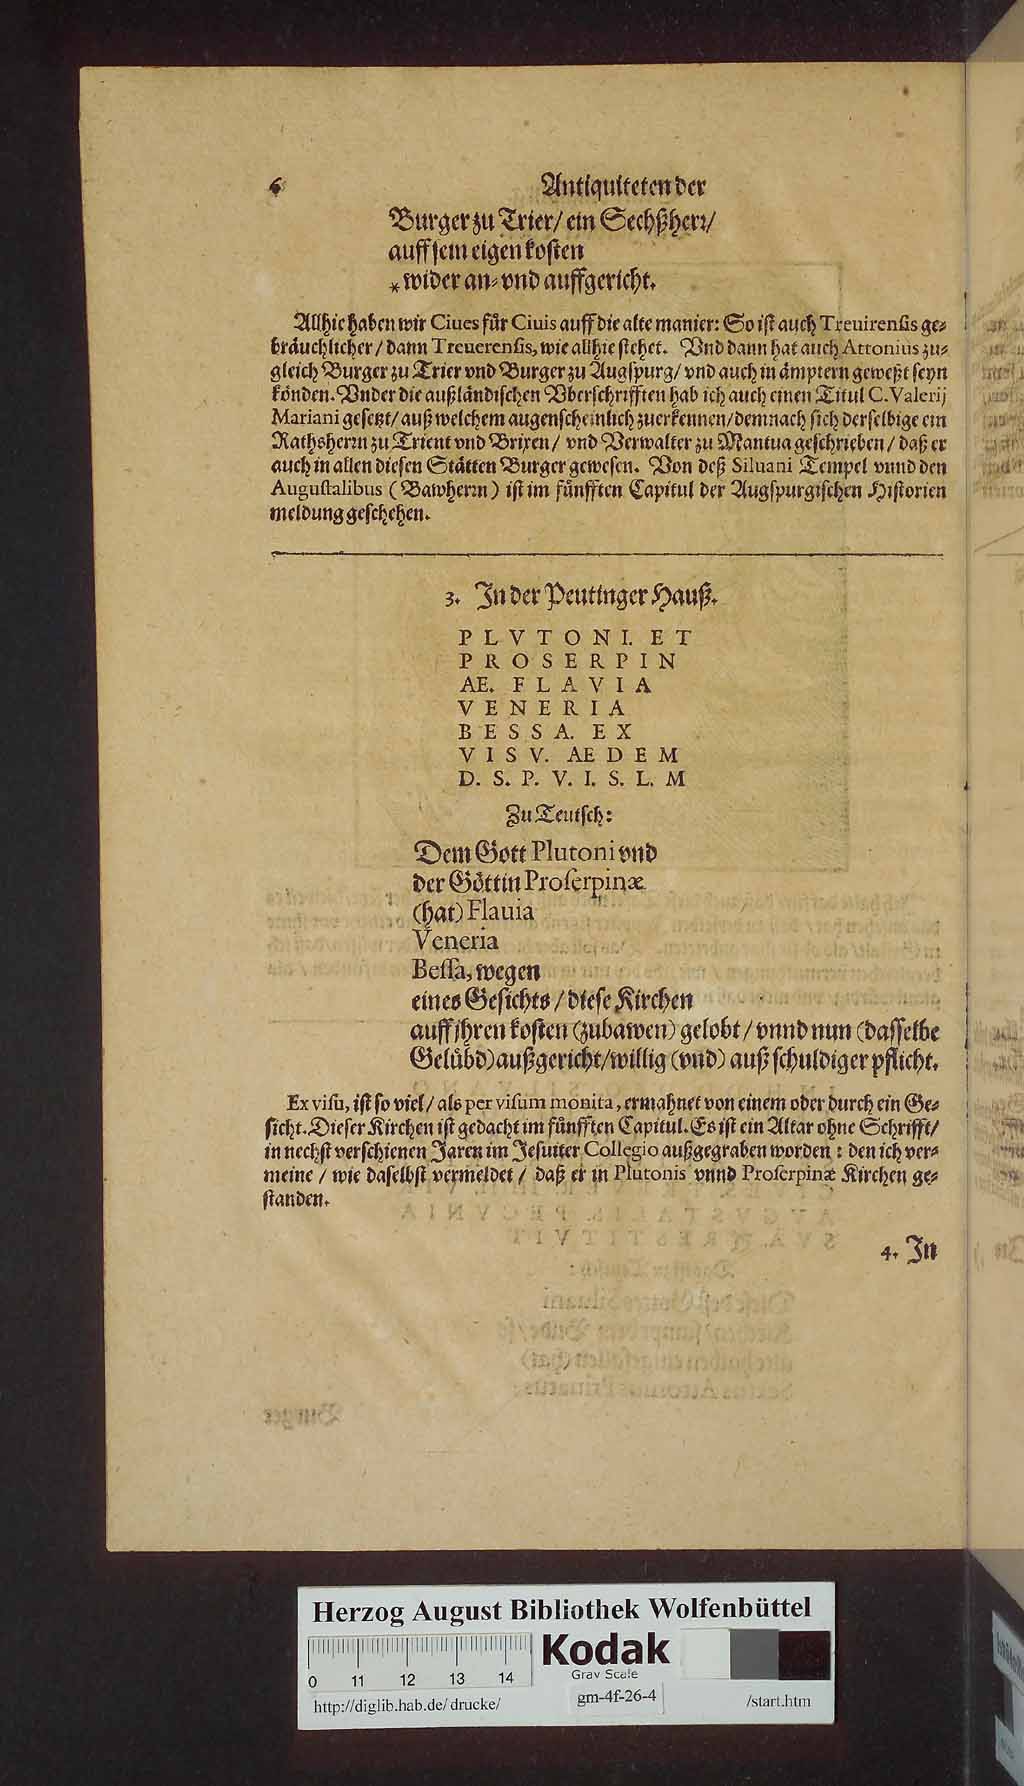 6 Antiquiteten der
Burger zu Trier/ ein Sechßherr/
auff sein eigen kosten
* wider an- vnd auffgericht.
Allhie haben wir Ciues für Ciuis auff die alte manier: So ist auch Treuirensis ge-
bräuchlicher/ dann Treuerensis, wie allhie stehet. Vnd dann hat auch Attonius zu-
gleich Burger zu Trier vnd Burger zu Augspurg/ vnd auch in ämptern geweßt seyn
könden. Vnder die außländischen Vberschrifften hab ich auch einen Titul C. Valerij
Mariani gesetzt/ auß welchem augenscheinlich zuerkennen/ demnach sich derselbige ein
Rathsherrn zu Trient vnd Brixen/ vnd Verwalter zu Mantua geschrieben/ daß er
auch in allen diesen Stätten Burger gewesen. Von deß Siluani Tempel vnnd den
Augustalibus (Bawherrn) ist im fünfften Capitul der Augspurgischen Historien
meldung geschehen.
3. In der Peutinger Hauß.
PLVTONI. ET
PROSERPIN
AE. FLAVIA
VENERIA
BESSA. EX
VISV. AEDEM
D. S. P. V. I. S. L. M
Zu Teutsch:
Dem Gott Plutoni vnd
der Göttin Proserpinæ
(hat) Flauia
Veneria
Bessa, wegen
eines Gesichts/ diese Kirchen
auff jhren kosten (zubawen) gelobt/ vnnd nun (dasselbe
Gelübd) außgericht/ willig (vnd) auß schuldiger pflicht.
Ex visu, ist so viel/ als per visum monita, ermahnet von einem oder durch ein Ge-
sicht. Dieser Kirchen ist gedacht im fünfften Capitul. Es ist ein Altar ohne Schrifft/
in nechst verschienen Jaren im Jesuiter Collegio außgegraben worden: den ich ver-
meine/ wie daselbst vermeldet/ daß er in Plutonis vnnd Proserpinæ Kirchen ge-
standen.
4. In
Herzog August Bibliothek Wolfenbüttel
Kodak
Gray Scale
0 11 12 13 14
http://diglib.hab.de/drucke/ gm-4f-26-4 /start.htm